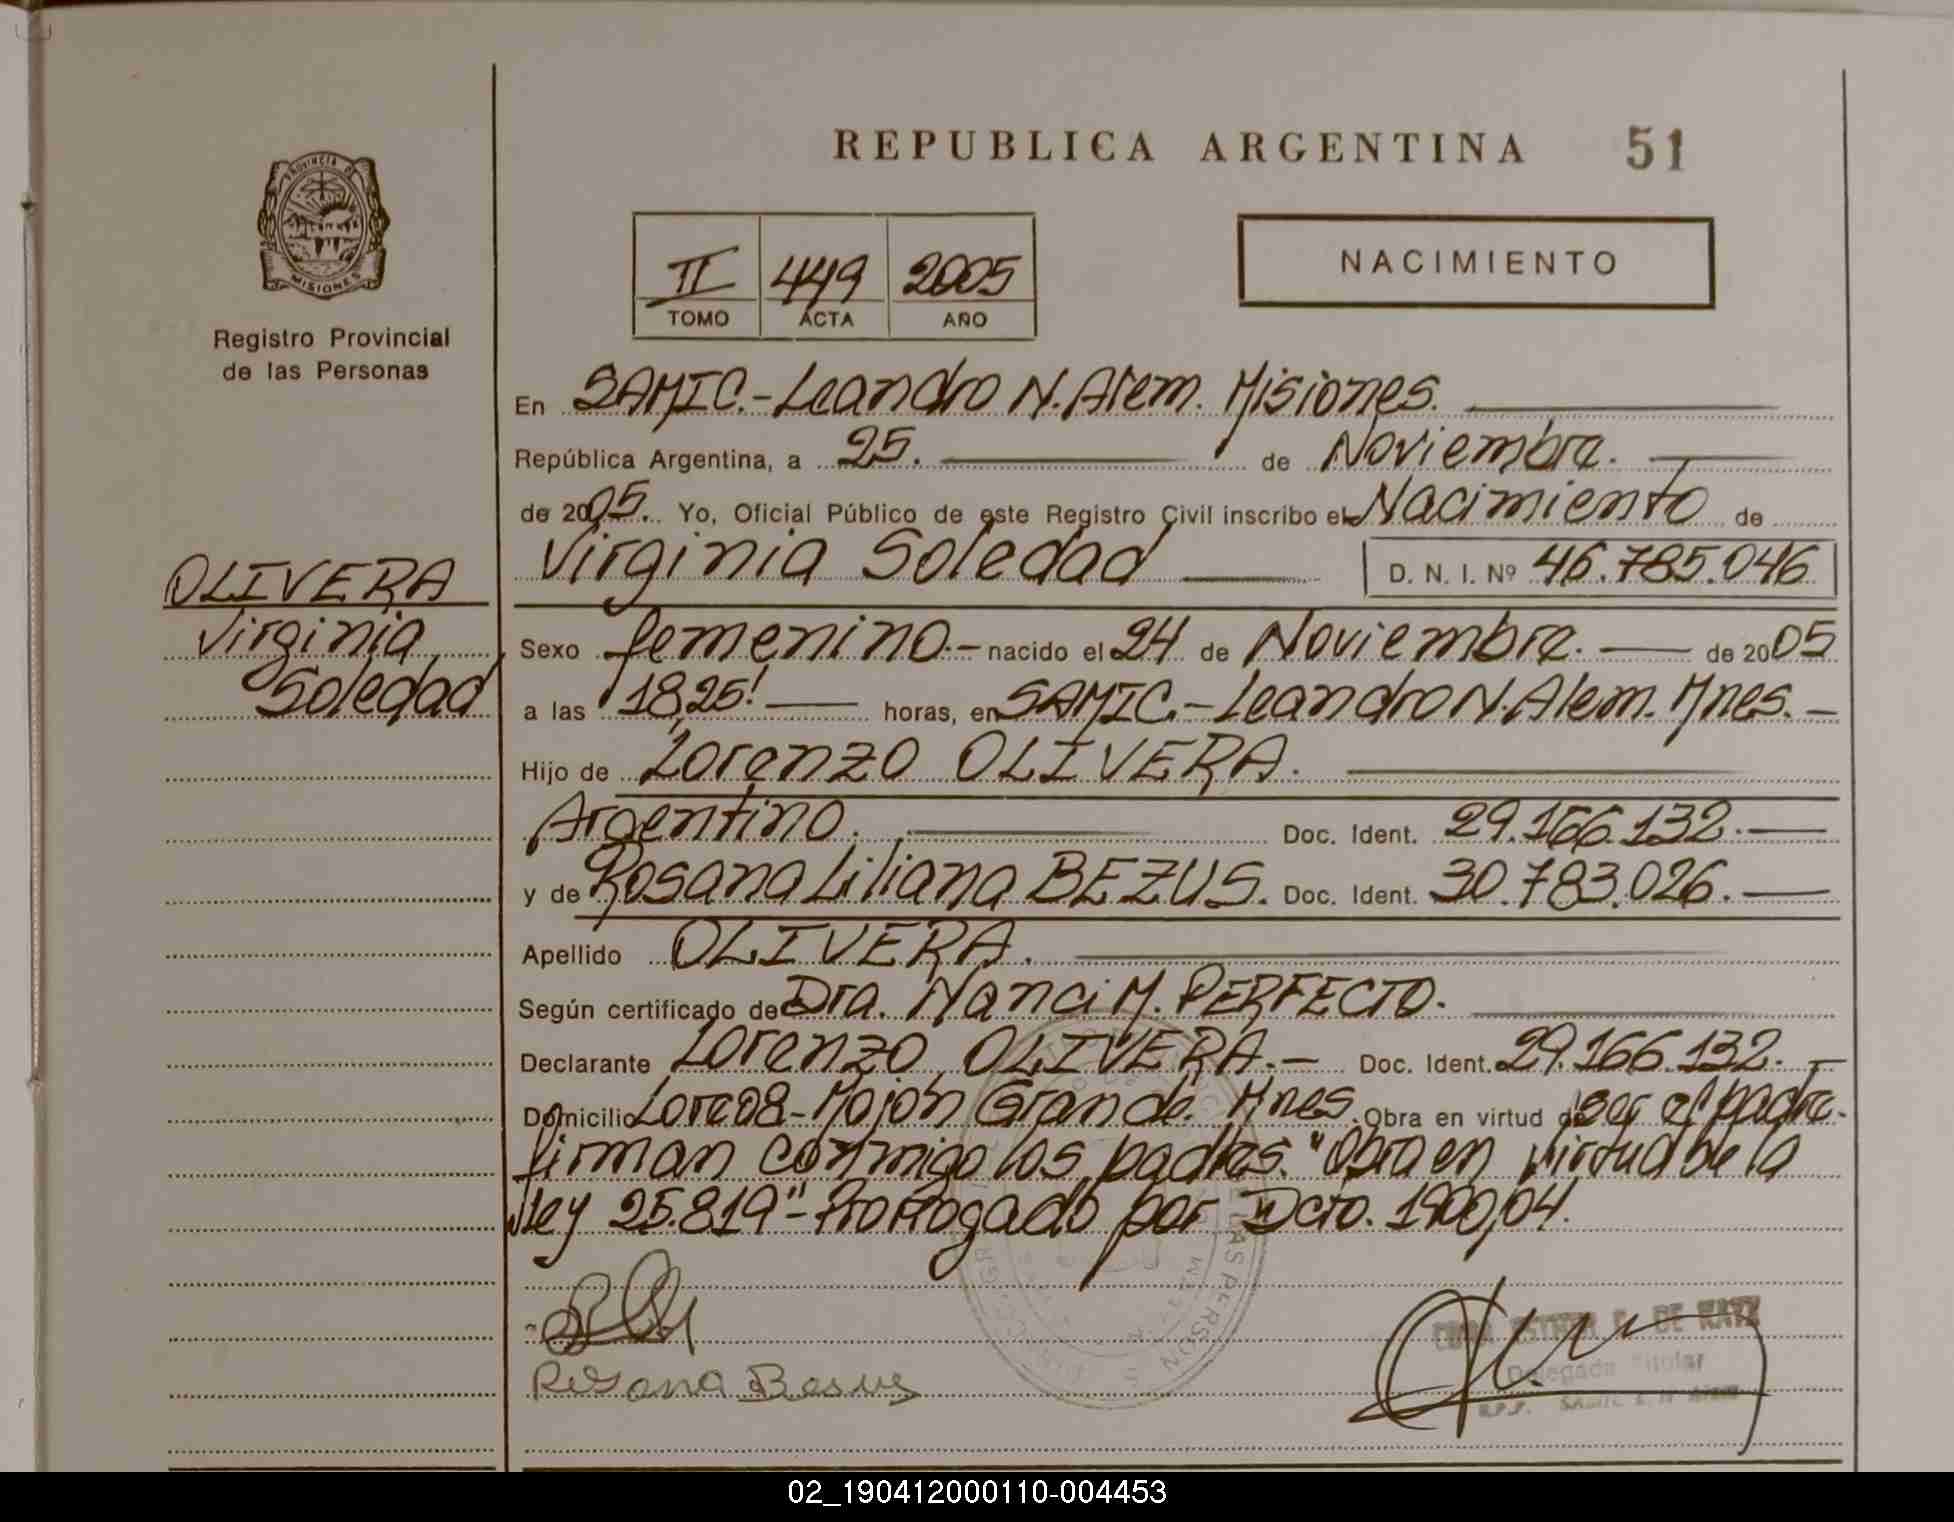 REPUBLICA ARGENTINA 51
PROVINCIA DE
MISIONES
Registro Provincial
de las Personas
II 449 2005
TOMO ACTA AÑO
NACIMIENTO
En SAMIC.-Leandro N. Alem. Misiones.
República Argentina, a 25. de Noviembre.
de 2005. Yo, Oficial Público de este Registro Civil inscribo el Nacimiento de
Virginia Soledad D. N. I. Nº 46.785.046
OLIVERA
Virginia
Soledad
Sexo femenino.- nacido el 24 de Noviembre. de 2005
a las 18,25! horas, en SAMIC.-Leandro N. Alem. Mnes.-
Hijo de Lorenzo OLIVERA.
Argentino. Doc. Ident. 29.166.132.
y de Rosana Liliana BEZUS. Doc. Ident. 30.783.026.
Apellido OLIVERA.
Según certificado de Dra. Nanci M. PERFECTO.
Declarante Lorenzo OLIVERA.- Doc. Ident. 29.166.132.-
Domicilio Mojón Grande. Mnes. Obra en virtud de ser el padre.
firman conmigo los padres. "Obra en virtud de la
ley 25.819"-Prorrogado por Dcto. 1900,04.
Rosana Besus
DE KATZ
Delegada Titular
02_190412000110-004453